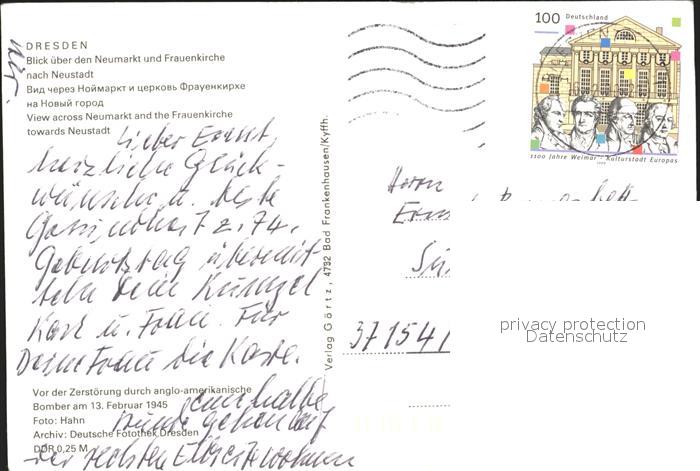 DRESDEN
Blick über den Neumarkt und Frauenkirche
nach Neustadt
Вид через Ноймаркт и церковь Фрауенкирхе
на Новый город
View across Neumarkt and the Frauenkirche
towards Neustadt
Lieber Ernst,
herzliche Glück-
wünsche u. beste
Gesundheit z. 74.
Geburtstag übermit-
teln Dein
Karl u. Frau. Für
Deine Frau die Karte.
Vor der Zerstörung durch anglo-amerikanische
Bomber am 13. Februar 1945
Foto: Hahn
Archiv: Deutsche Fotothek Dresden
DDR 0,25 M
eine halbe
Stunde
der rechten Elbseite wohnen
Verlag Görtz, 4732 Bad Frankenhausen/Kyffh.
100 Deutschland
1100 Jahre Weimar - Kulturstadt Europas
1999
Herrn
37154
privacy protection
Datenschutz